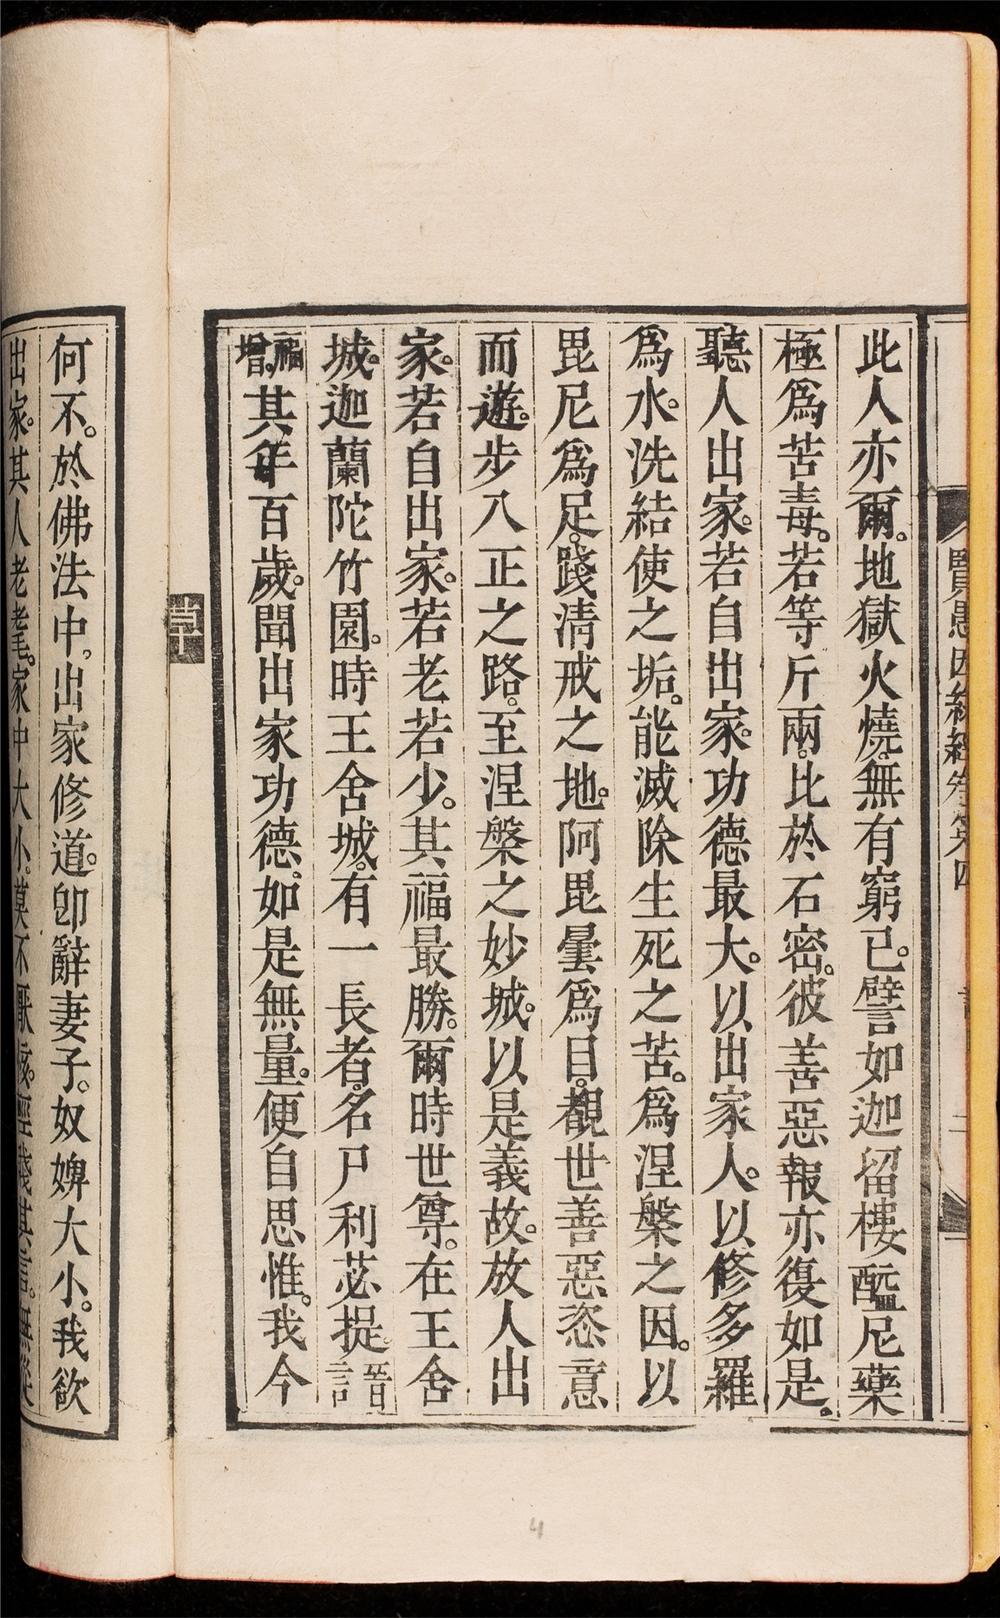 賢愚因緣經卷第四
此人亦爾。地獄火燒。無有窮已。譬如迦留樓醯尼藥
極爲苦毒。若等斤兩。比於石密。彼善惡報亦復如是。
聽人出家。若自出家。功德最大。以出家人。以修多羅
爲水。洗結使之垢。能滅除生死之苦。爲涅槃之因。以
毘尼爲足。踐清戒之地。阿毘曇爲目。覩世善惡恣意
而遊。步八正之路。至涅槃之妙城。以是義故。放人出
家。若自出家。若老若少。其福最勝。爾時世尊。在王舍
城。迦蘭陀竹園。時王舍城。有一長者。名尸利苾提。晉言
福增。其年百歲。聞出家功德。如是無量。便自思惟。我今
草十
何不。於佛法中。出家修道。卽辭妻子。奴婢大小。我欲
出家。其人老耄。家中大小。莫不厭
4